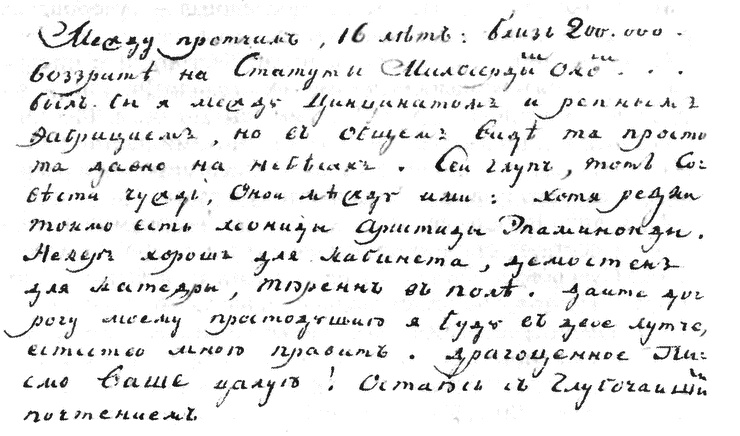 Между протчимъ, 16 лѣтъ: близь 200.000.
воззритѣ на Статуты Милосердій Охъ...
былъ бы я между Цинцинатомъ и репнымъ
Фабрициемъ, но въ общемъ видѣ та просто
та давно на небѣсахъ. Сей глупъ, тотъ Со-
вѣсти чуждъ, оной мѣжду ими: хотя редки
токмо есть леониды Аристиды Эпаминонды.
Некеръ хорошъ для кабинета, демостенъ
для катедры, Тюреннъ въ полѣ. дайте дор
рогу моему простодушию я буду въ двое лутче,
естество мною правитъ. драгоценное Пи-
смо Ваше цалую! Остаюсь съ Глубочаиший
почтениемъ